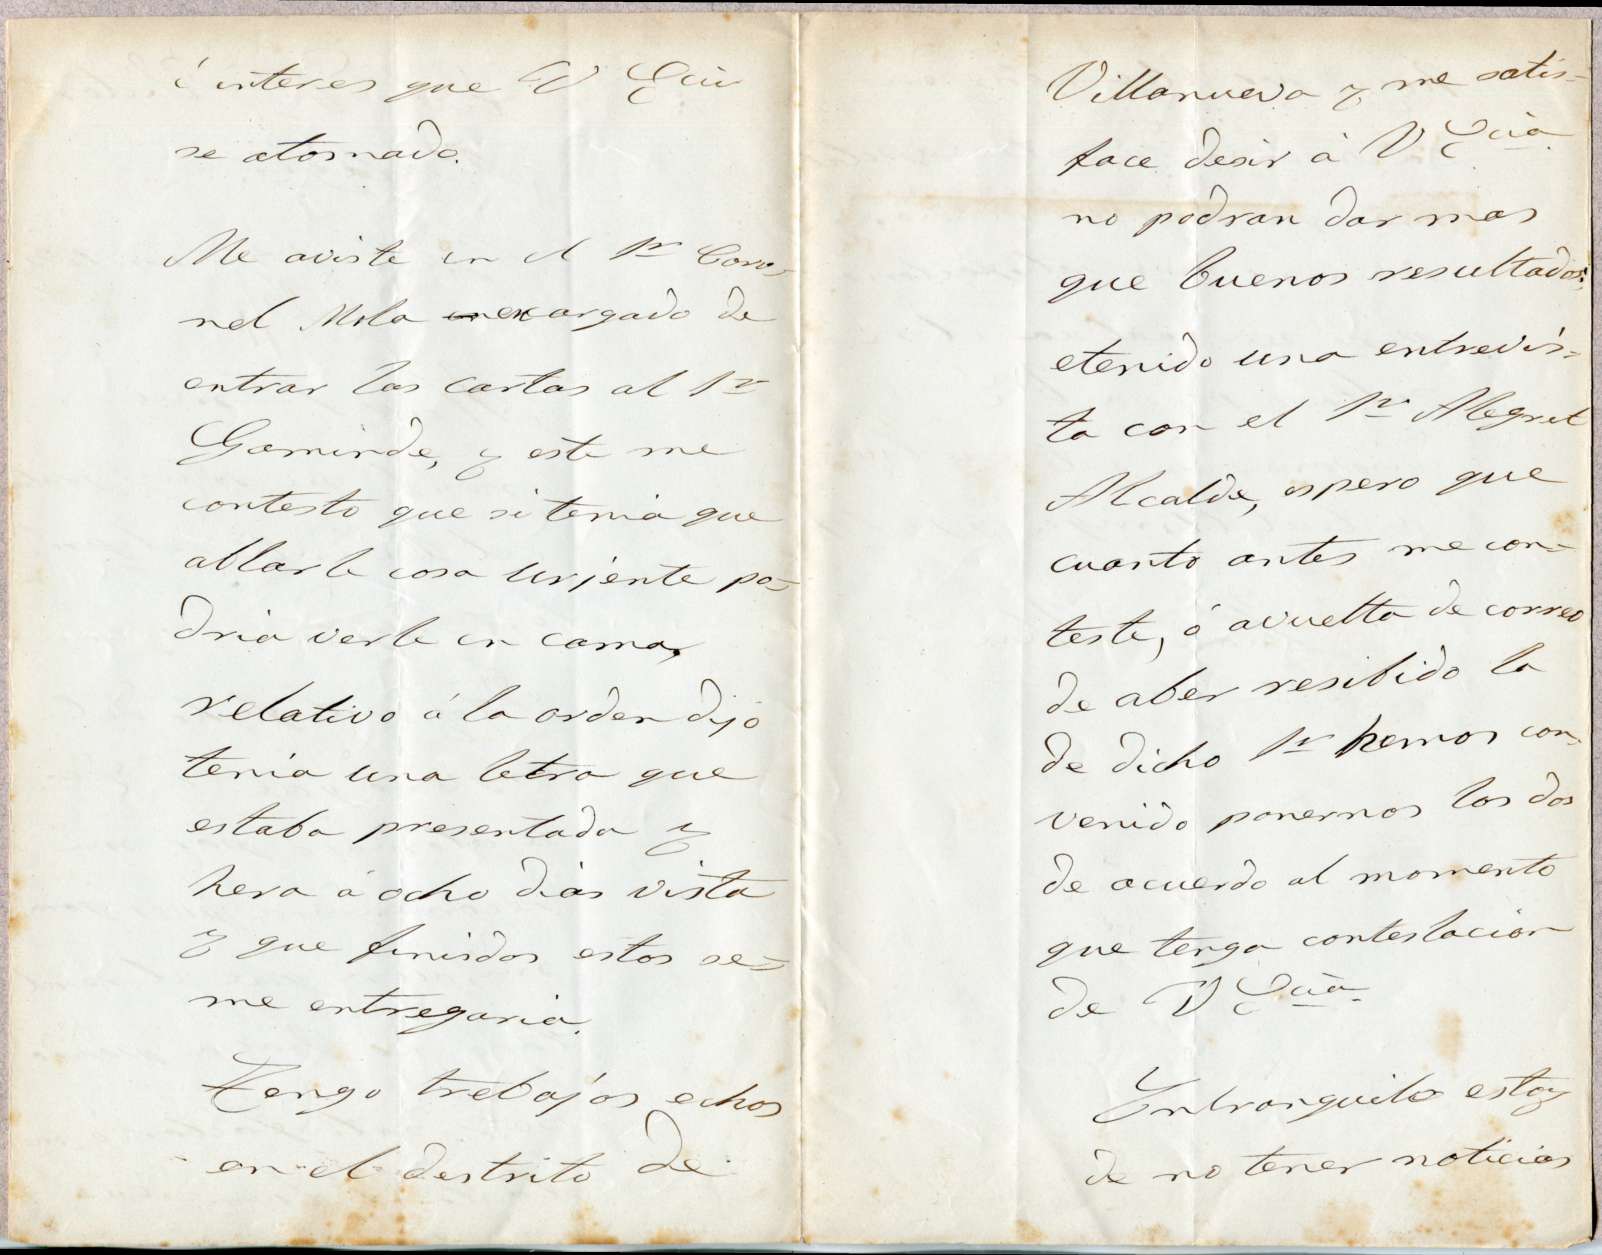 é interes que V Ecia
se atomado.
Me aviste en el Sr Coro-
nel Mola encargado de
entrar las cartas al Sr
Gaminde, y este me
contesto que si tenia que
ablarle cosa urjente po-
dria verle en cama,
relativo á la orden dijo
tenia una letra que
estaba presentada y
hera á ocho dias vista
y que finidos estos se-
me entregaria.
Tengo trebajos echos
en el destrito de
Villanueva y me satis-
face desir á V Ecia.
no podran dar mas
que buenos resultados;
etenido una entrevis-
ta con el Sr Alegret
Alcalde, espero que
cuanto antes me con-
teste, ó avuelta de correo
de aber resibido la
de dicho Sr hemos con-
venido ponernos los dos
de acuerdo al momento
que tenga contestacion
de V Ecia.
Intranquilo estoy
de no tener noticias